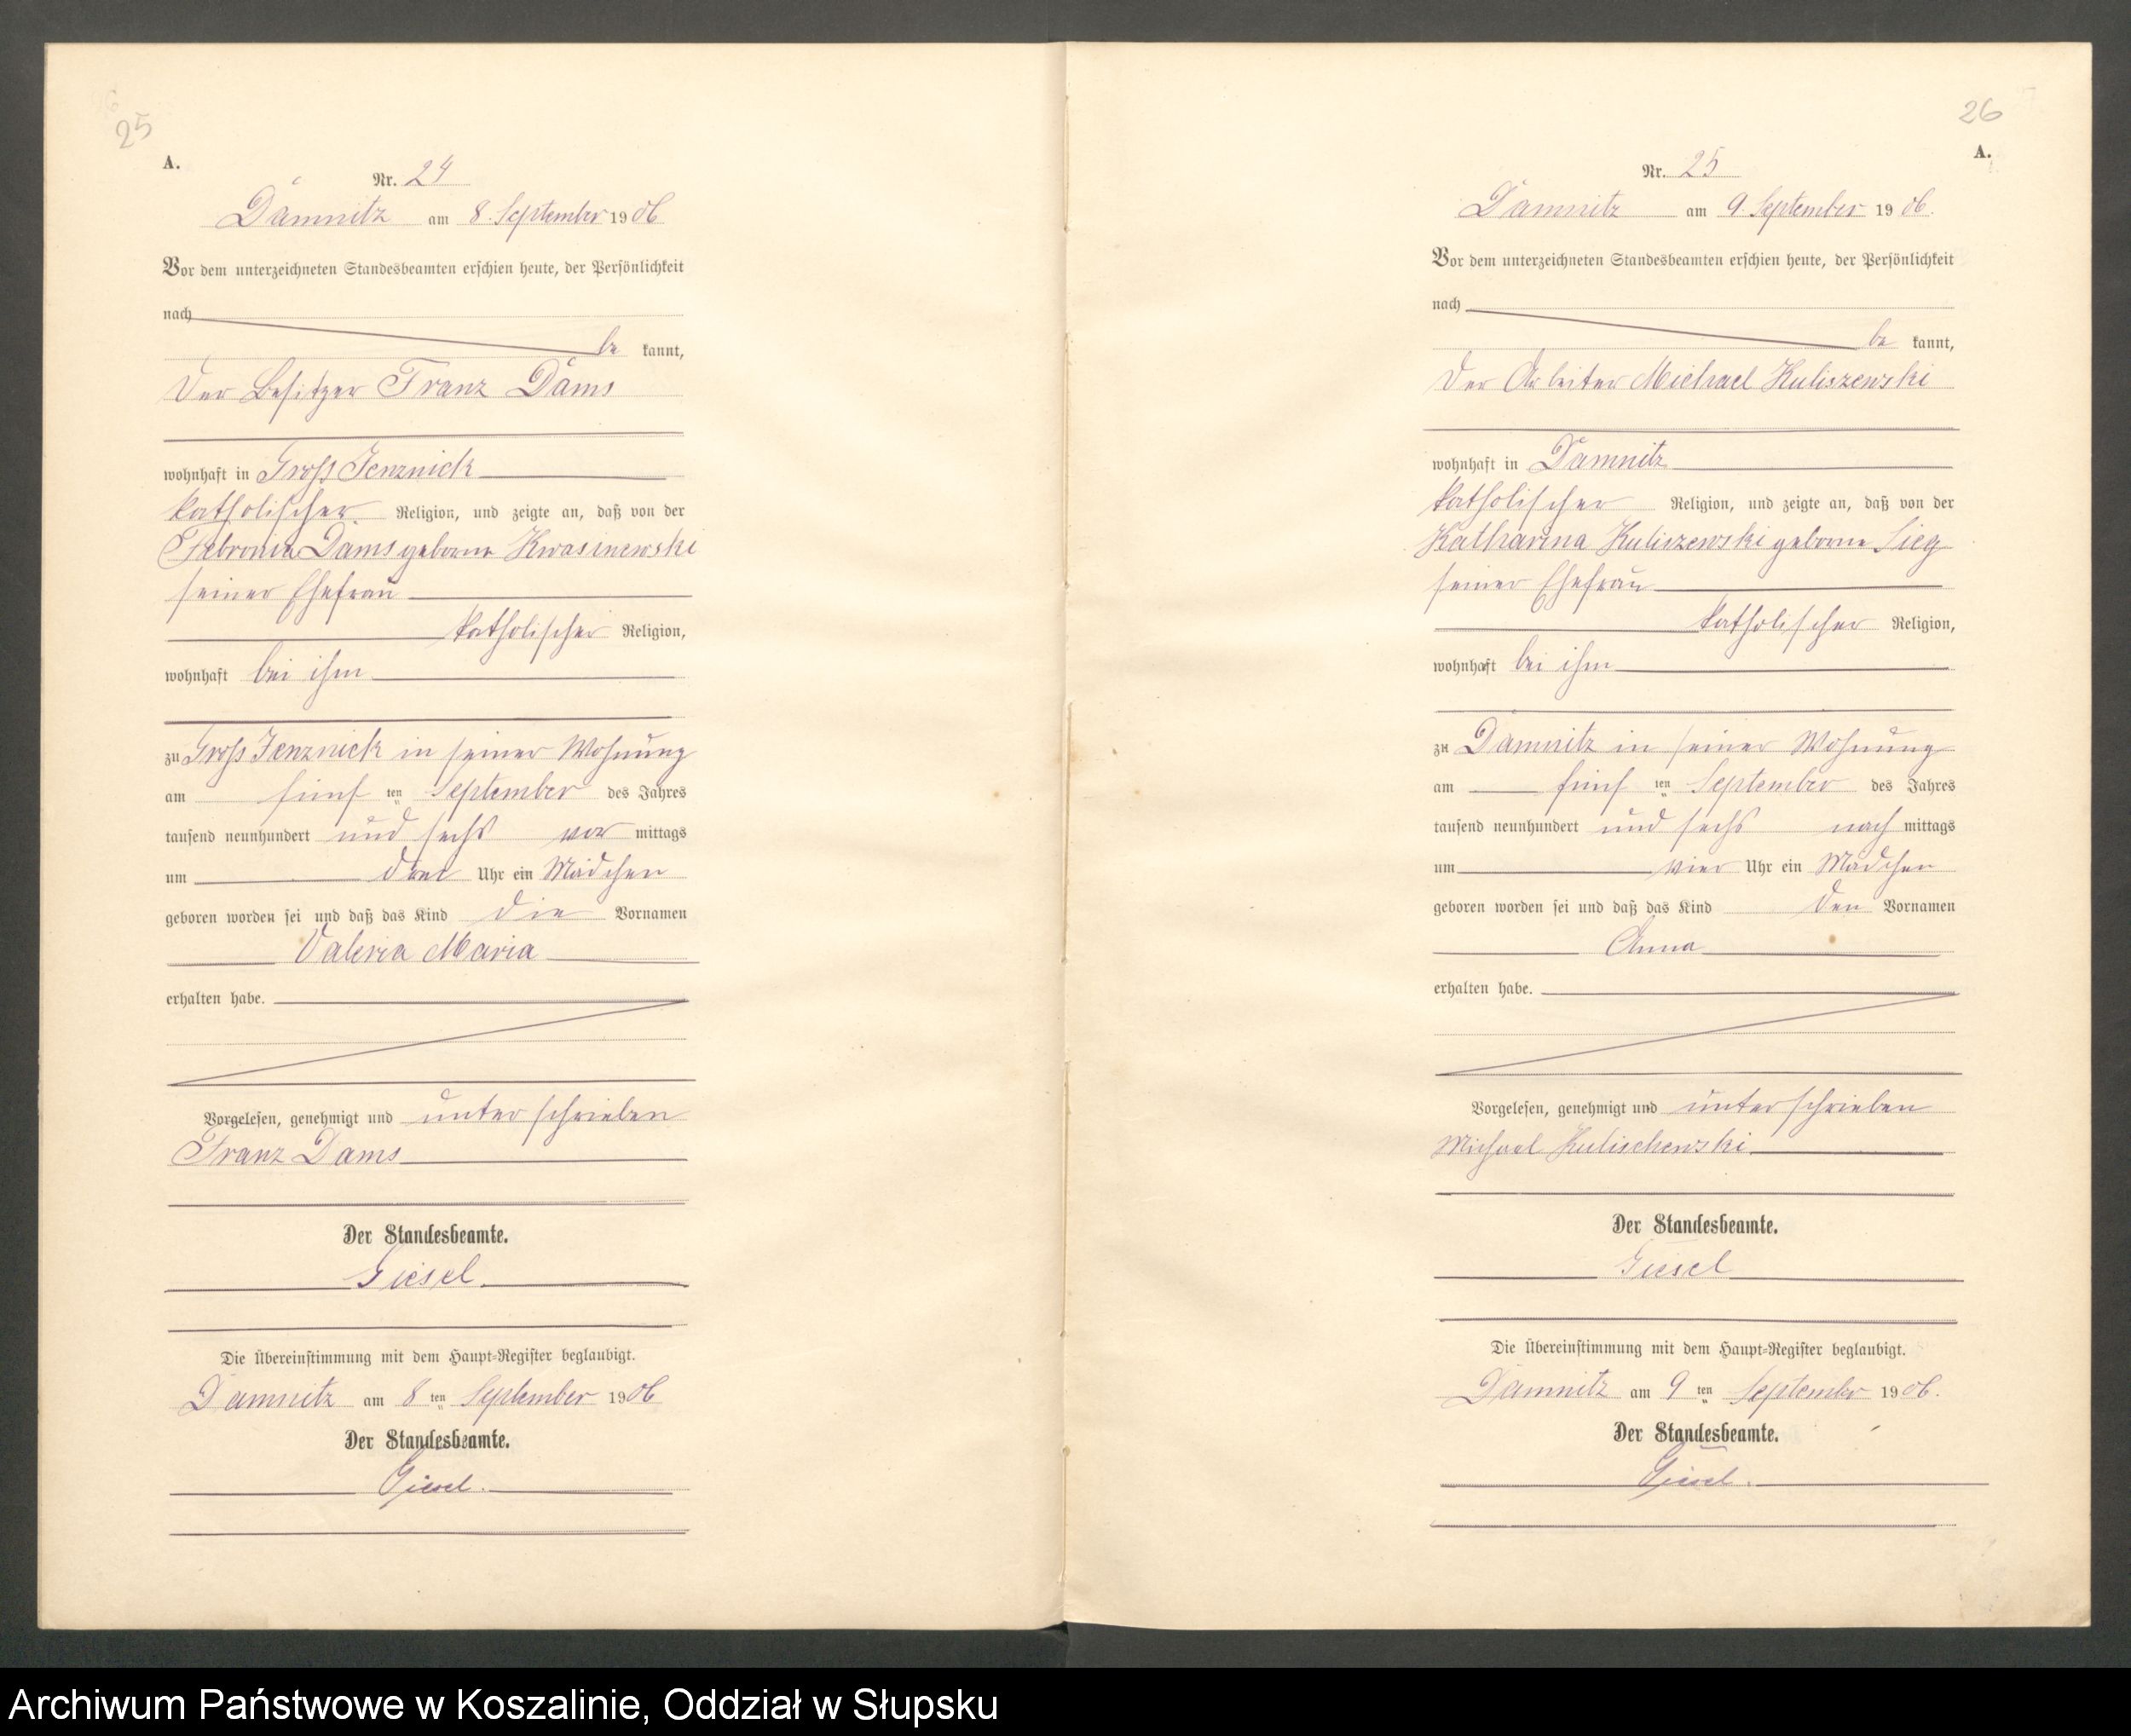 25
A.
Nr. 24
Damnitz am 8. September 1906
Vor dem unterzeichneten Standesbeamten erschien heute, der Persönlichkeit
nach
be kannt,
der Besitzer Franz Dams
wohnhaft in Gross Jenznick
katholischer Religion, und zeigte an, daß von der
Febronia Dams geborne Kwasinewski
seiner Ehefrau
katholischer Religion,
wohnhaft bei ihm
zu Gross Jenznick in seiner Wohnung
am fünf ten September des Jahres
tausend neunhundert und sechs vor mittags
um drei Uhr ein Mädchen
geboren worden sei und daß das Kind die Vornamen
Valeria Maria
erhalten habe.
Vorgelesen, genehmigt und unterschrieben
Franz Dams
Der Standesbeamte.
Giesel
Die Übereinstimmung mit dem Haupt-Register beglaubigt.
Damnitz am 8 ten September 1906
Der Standesbeamte.
Giesel.
26
A.
Nr. 25
Damnitz am 9. September 1906.
Vor dem unterzeichneten Standesbeamten erschien heute, der Persönlichkeit
nach
be kannt,
der Arbeiter Michael Kuliszewski
wohnhaft in Damnitz
katholischer Religion, und zeigte an, daß von der
Katharina Kuliszewski geborne Sieg
seiner Ehefrau
katholischer Religion,
wohnhaft bei ihm
zu Damnitz in seiner Wohnung
am fünf ten September des Jahres
tausend neunhundert und sechs nach mittags
um vier Uhr ein Mädchen
geboren worden sei und daß das Kind den Vornamen
Anna
erhalten habe.
Vorgelesen, genehmigt und unterschrieben
Michael Kulischewski
Der Standesbeamte.
Giesel
Die Übereinstimmung mit dem Haupt-Register beglaubigt.
Damnitz am 9 ten September 1906.
Der Standesbeamte.
Giesel.
Archiwum Państwowe w Koszalinie, Oddział w Słupsku